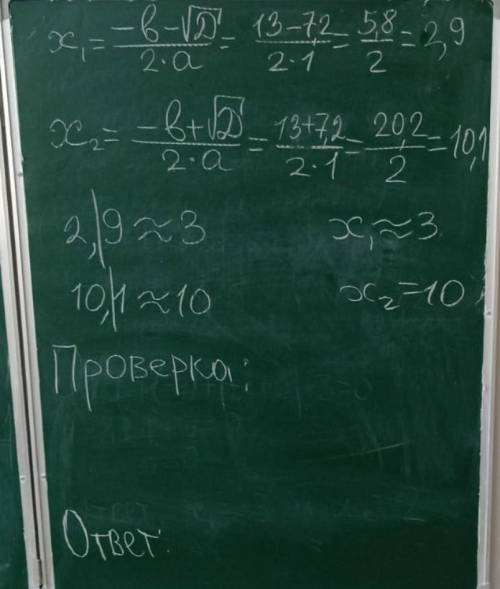 x₁ = (-в-√D)/(2·a) = (13-7,2)/(2·1) = 5,8/2 = 2,9
x₂ = (-в+√D)/(2·a) = (13+7,2)/(2·1) = 20,2/2 = 10,1
2,|9 ≈ 3 x₁ ≈ 3
10,|1 ≈ 10 x₂ = 10
Проверка:
Ответ: